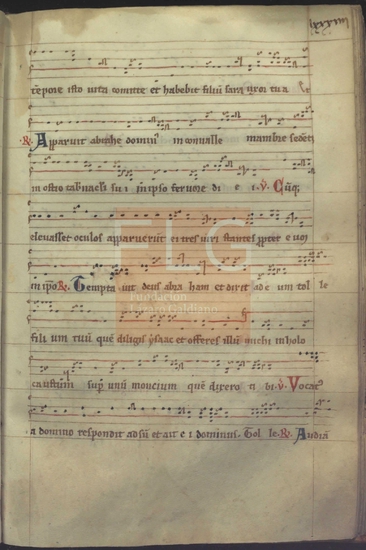 tēpore isto vita comite et habebit filiū sara uxor tua
R. Apparuit abrahe dominus in convalle mambre sedēti
in ostro tabnaculi sui in ipso fervore diei. V. Cūq;
elevasset oculos apparuerunt ei tres viri stantes ppter eum
in ipo R. Temptavit deus abraham et dixit ad eum tolle
filium tuū quē diligis ysaac et offeres illū michi in holo
caustum super unū moncium quē dixero tibi. V. Vocat9
a domino respondit adsū et ait ei dominus. Tolle. R. Audivi
FLG
Fundación
Lázaro Galdiano